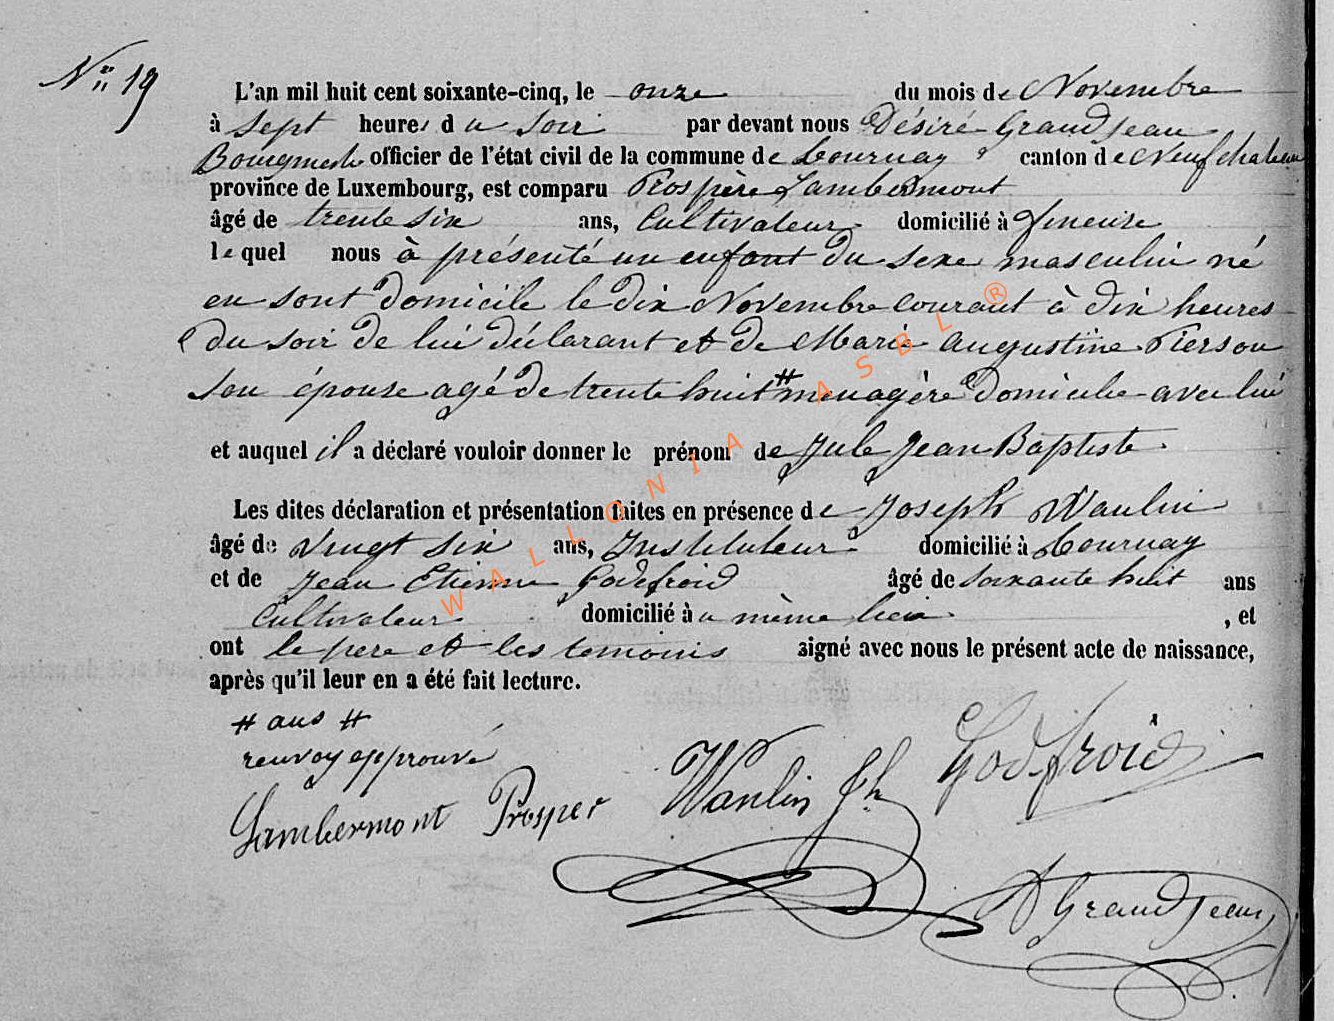 N° 19
L'an mil huit cent soixante-cinq, le onze du mois de Novembre
à sept heures du soir par devant nous Désiré Grandjean
Bourgmestre officier de l'état civil de la commune de Tournay canton de Neufchateau
province de Luxembourg, est comparu Prospère Lambermont
âgé de trente six ans, Cultivateur domicilié à
lequel nous à présenté un enfant du sexe masculin né
en sont domicile le dix Novembre courant à dix heures
du soir de lui déclarant et de Marie Augustine Pierson
son épouse agé de trente huit # menagère domiciliée avec lui
et auquel il a déclaré vouloir donner le prénom de Jule Jean Baptiste
Les dites déclaration et présentation faites en présence de Joseph Wanlin
âgé de vingt six ans, Instituteur domicilié à Tournay
et de Jean Etienne Godefroid âgé de soixante huit ans
Cultivateur domicilié au même lieu , et
ont le pere et les temoins signé avec nous le présent acte de naissance,
après qu'il leur en a été fait lecture.
# ans #
renvoy approuvé
Lambermont Prosper Wanlin Jh Godfroid
D Grandjean
WALLONIA ASBL ®